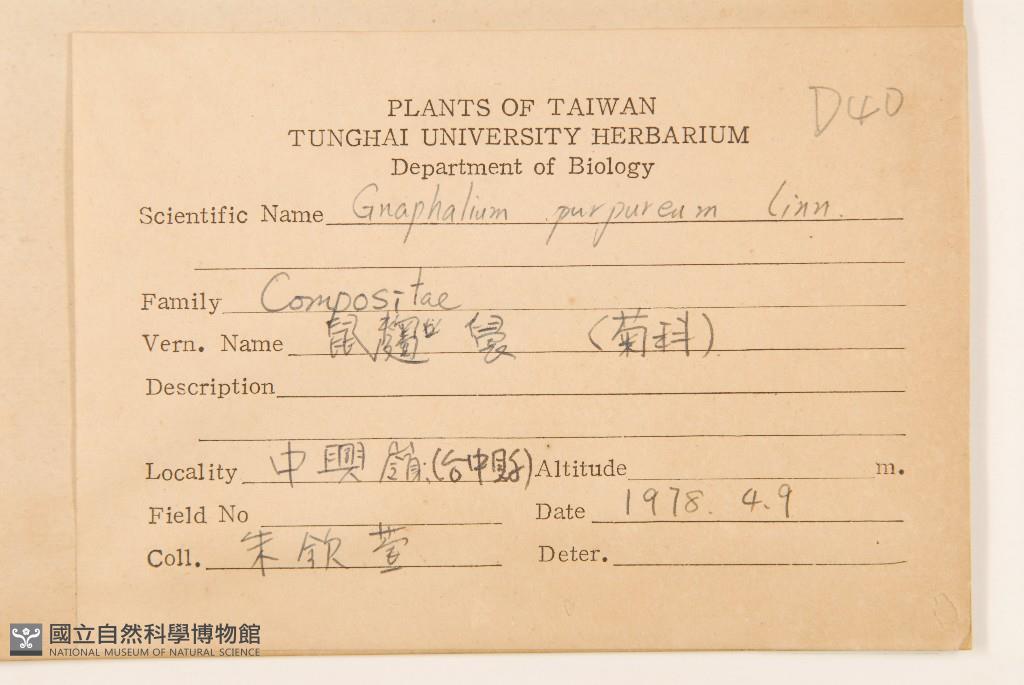 D40
PLANTS OF TAIWAN
TUNGHAI UNIVERSITY HERBARIUM
Department of Biology
Scientific Name Gnaphalium purpureum Linn.
Family Compositae
Vern. Name 鼠麴 (菊科)
Description
Locality 中興嶺(台中縣) Altitude m.
Field No Date 1978. 4.9
Coll. 朱欽萱 Deter.
國立自然科學博物館
NATIONAL MUSEUM OF NATURAL SCIENCE